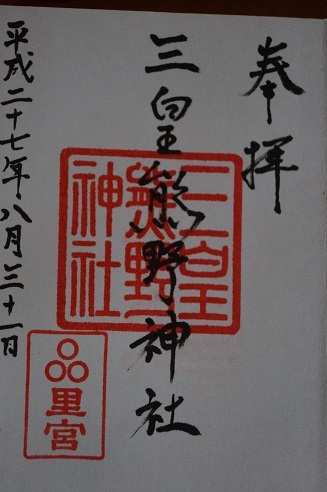 奉拝
三皇熊野神社
三皇
熊野
神社
平成二十七年八月三十一日
里宮